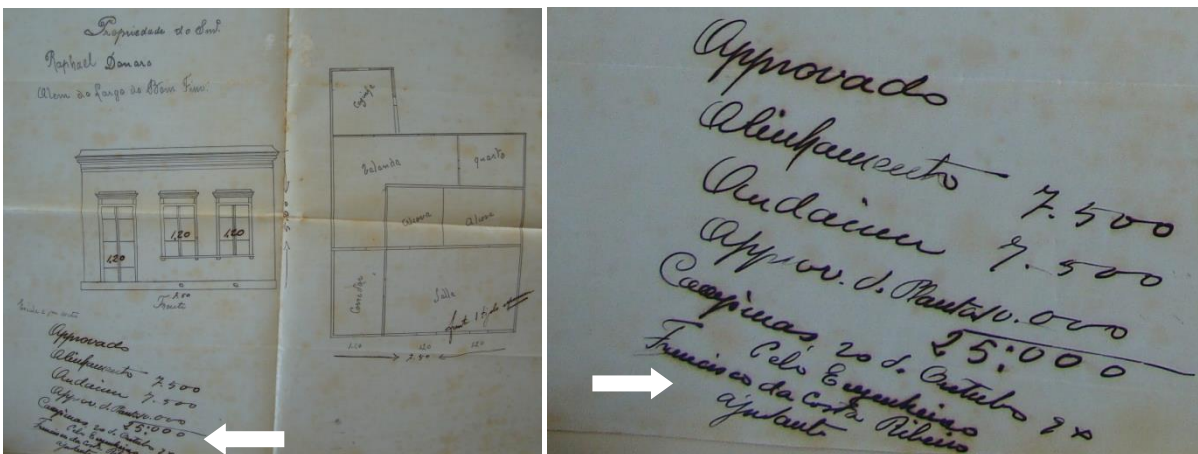 Propriedade do Snr.
Raphael Donaro
Alem do Largo do Bom Fim.
1,20
1,20
1,20
7.50
Frente
Cozinha
Varanda
quarto
Alcova
Alcova
Corredor
Salla
1.20
120
120
7.50
Approvado
Alinhamento 7.500
Andaimes 7.500
Approv. d. Planta 10.000
25:000
Campinas 20 d. Outubro 9
Pelo Engenheiro
Francisco da Costa Ribeiro
ajudante
Approvado
Alinhamento 7.500
Andaimes 7.500
Approv. d. Planta 10.000
25:000
Campinas 20 d. Outubro 9
Pelo Engenheiro
Francisco da Costa Ribeiro
ajudante